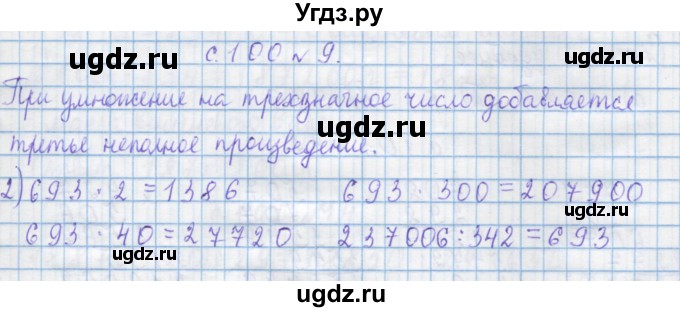 Угдз.ру
с.100 №9.
При умножение на трехзначное число добавляется
третье неполное произведение.
2) 693 · 2 = 1386 693 · 300 = 207900
693 · 40 = 27720 237006 : 342 = 693
ugdz.ru
ugdz.ru
ugdz.ru
ugdz.ru
ugdz.ru
ugdz.ru
ugdz.ru
ugdz.ru